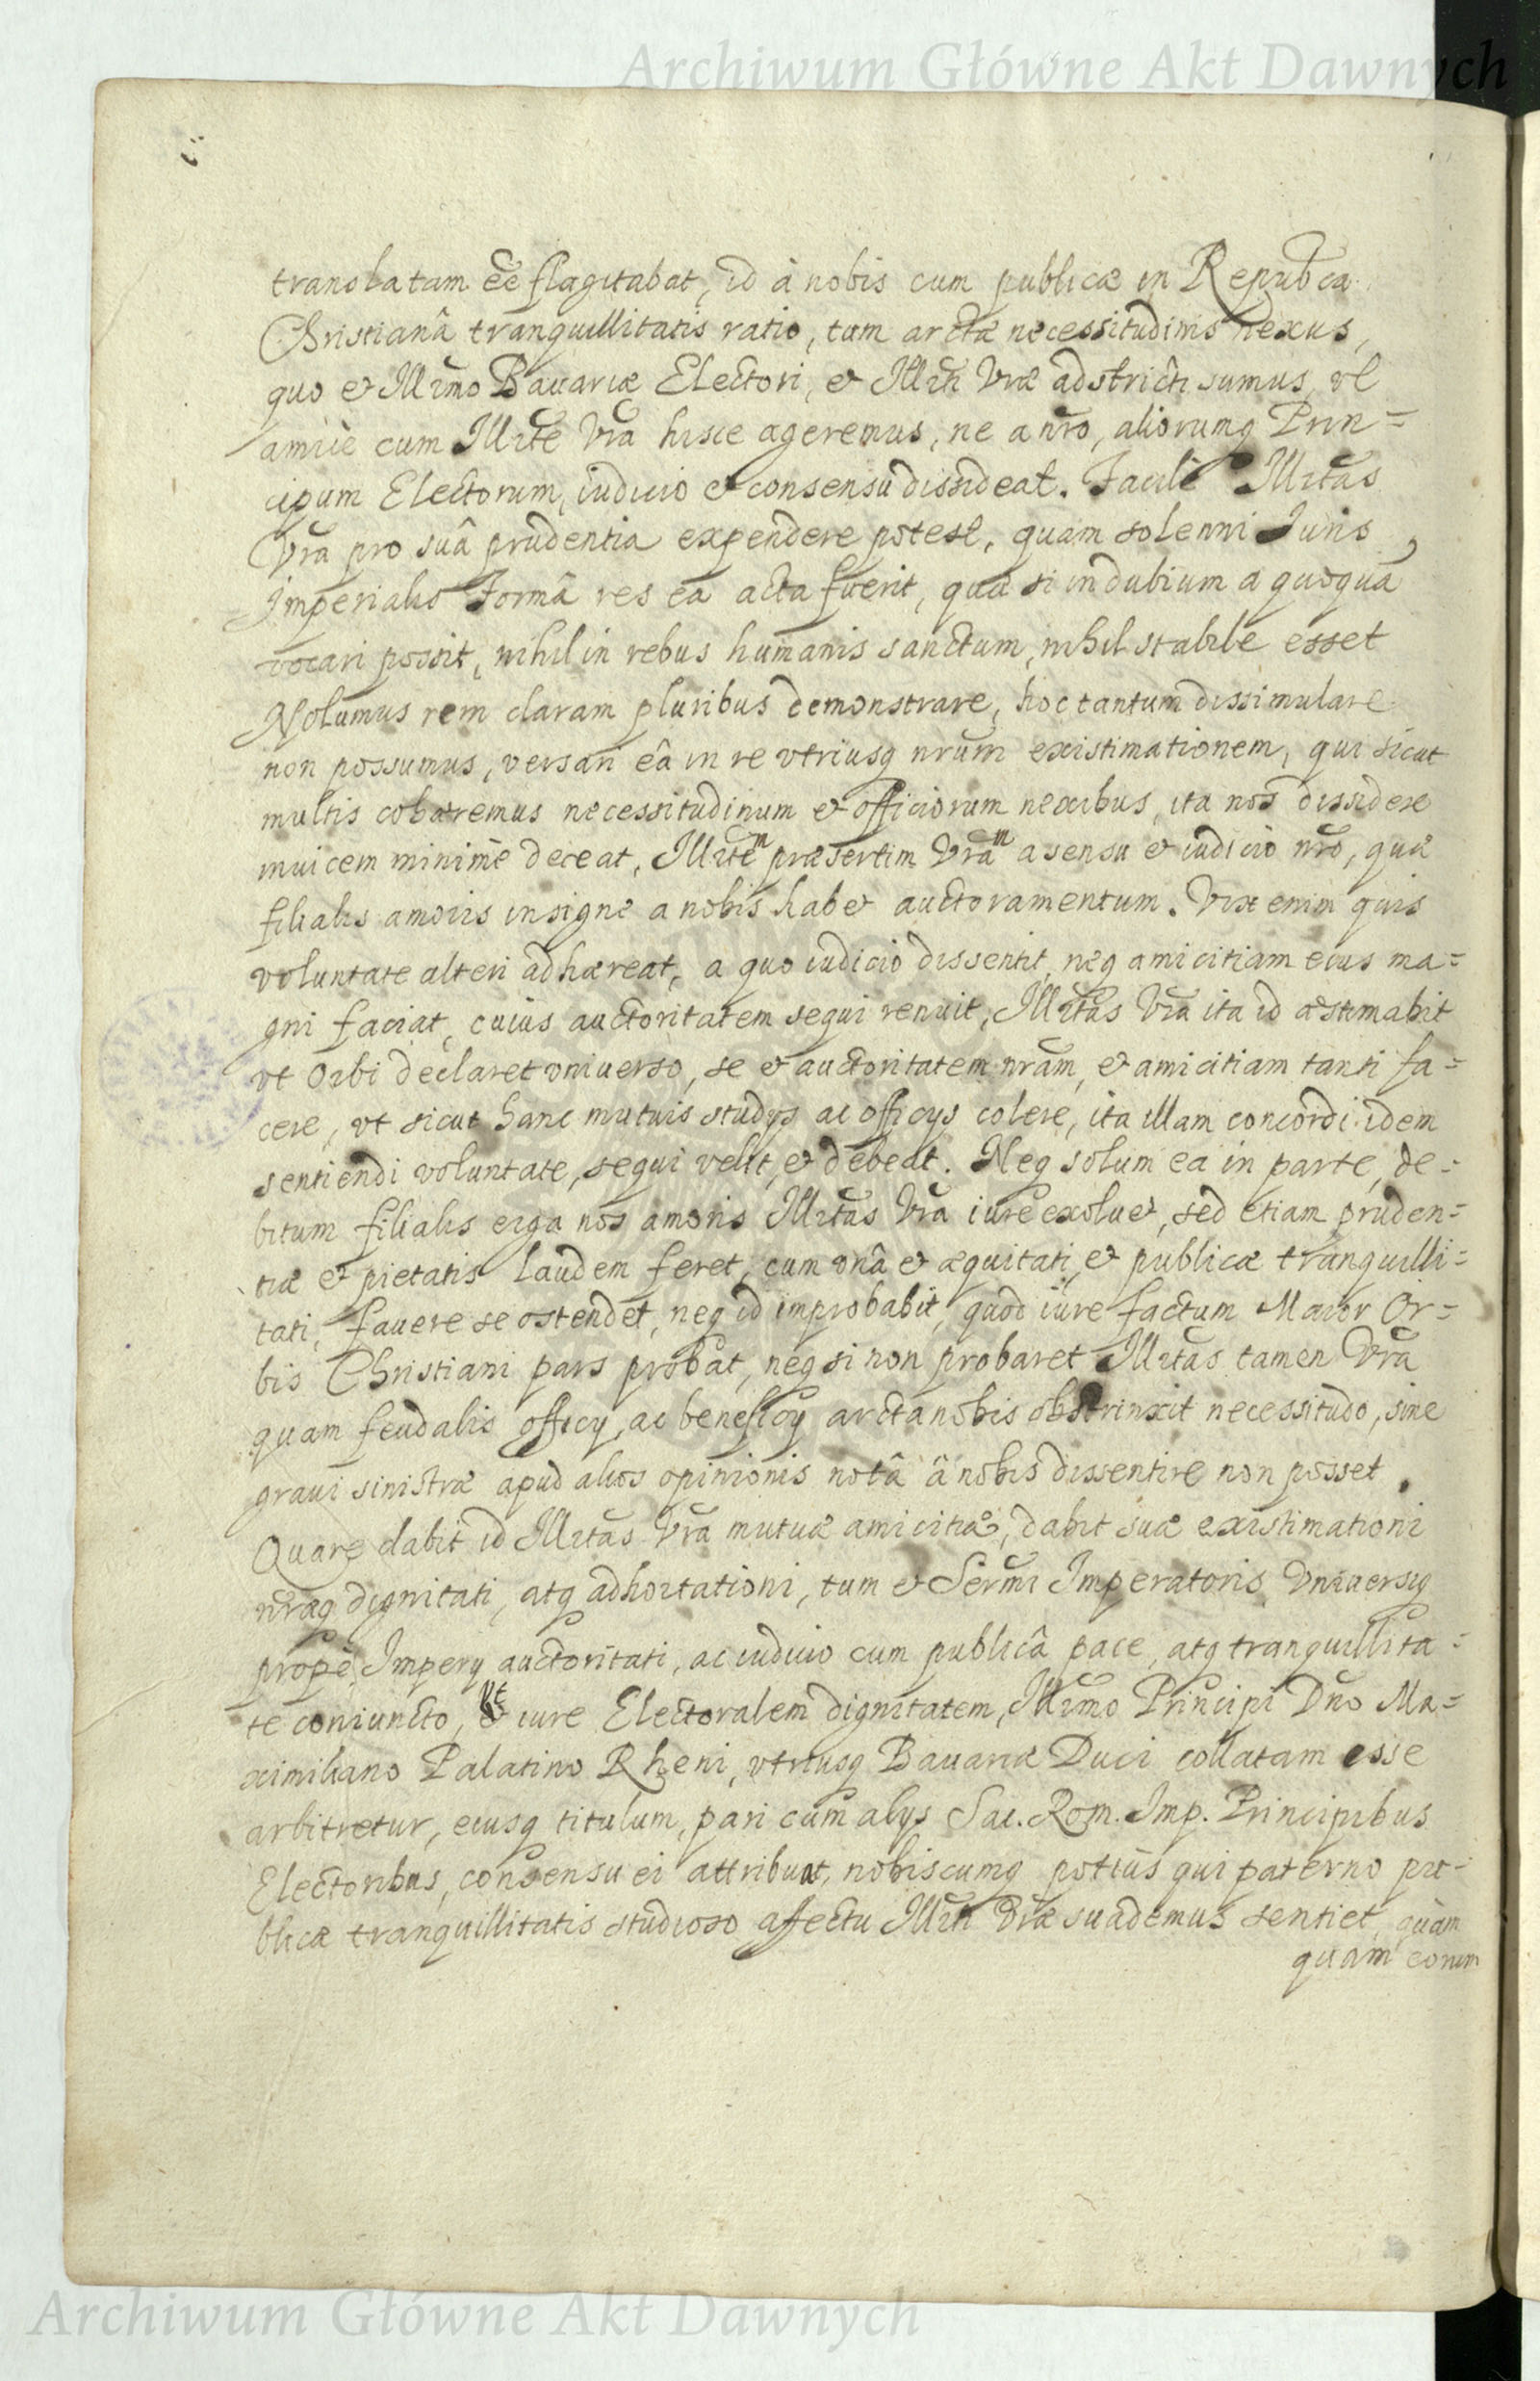 Archiwum Główne Akt Dawnych
translatam ee͂ flagitabat, id à nobis cum publicæ in Repub͂ca
Christianâ tranquillitatis ratio, tum arctæ necessitudinis nexus,
quo et Illr͂mo Bavariæ Electori, et Illr͂ti Vr͂æ adstricti sumus, vt
amicè cum Illr͂te Vr͂a hisce ageremus, ne a nr͂o, aliorumq Prin=
cipum Electorum, iudicio et consensu dissideat. Facilè Illr͂tas
Vr͂a pro suâ prudentia expendere potest, quam solenni Iuris
Imperialis Formâ res ea acta fuerit, quæ si in dubium a quoquã
vocari possit, nihil in rebus humanis sanctum, nihil stabile esset
Nolumus rem claram pluribus demonstrare, hoc tantum dissimulare
non possumus, versari eâ in re vtriusq nr͂um existimationem, qui sicut
multis cohæremus necessitudinum et officiorum nexibus, ita nos dissidere
inuicem minimè deceat, Illr͂tem præsertim Vr͂am a sensu et iudicio nr͂o, quæ
filialis amoris insigne a nobis habet auctoramentum. Vix enim quis
voluntate alteri adhæreat, a quo iudicio dissentit, neq amicitiam eius ma=
gni faciat, cuius auctoritatem sequi renuit, Illr͂tas Vr͂a ita id æstimabit
vt Orbi declaret vniuerso, se et auctoritatem nr͂am, et amicitiam tanti fa=
cere, vt sicut hanc mutuis studijs ac officijs colere, ita illam concordi idem
sentiendi voluntate, sequi velit, et debeat. Neq solum ea in parte, de=
bitum filialis erga nos amoris Illr͂tas Vr͂a iure exoluet, sed etiam pruden=
tiæ et pietatis laudem feret, cum vnâ et æquitati, et publicæ tranquilli=
tati, fauere se ostendet, neq id improbabit, quod iure factum Maior Or=
bis Christiani pars probat, neq si non probaret Illr͂tas tamen Vr͂a
quam feudalis officij, ac beneficij arcta nobis obstrinxit necessitudo, sine
graui sinistræ apud alios opinionis notâ â nobis dissentire non posset.
Quare dabit id Illr͂tas Vr͂a mutuæ amicitiæ, dabit suæ existimationi
nr͂æq dignitati, atq adhortationi, tum et Serm͂i Imperatoris, Vniuersiq
propè Imperij auctoritati, ac iudicio cum publicâ pace, atq tranquillita=
te coniuncto, vt iure Electoralem dignitatem, Illr͂mo Principi Dn͂o Ma=
ximiliano Palatino Rheni, vtriusq Bauariæ Duci collatam esse
arbitretur, eiusq titulum, pari cum alijs Sac. Rom. Imp. Principibus
Electoribus, consensu ei attribuat, nobiscumq potiùs qui paterno pu=
blicæ tranquillitatis studioso affectu Illr͂ti Vr͂æ suademus sentiet, quàm
quam eorum
Archiwum Główne Akt Dawnych